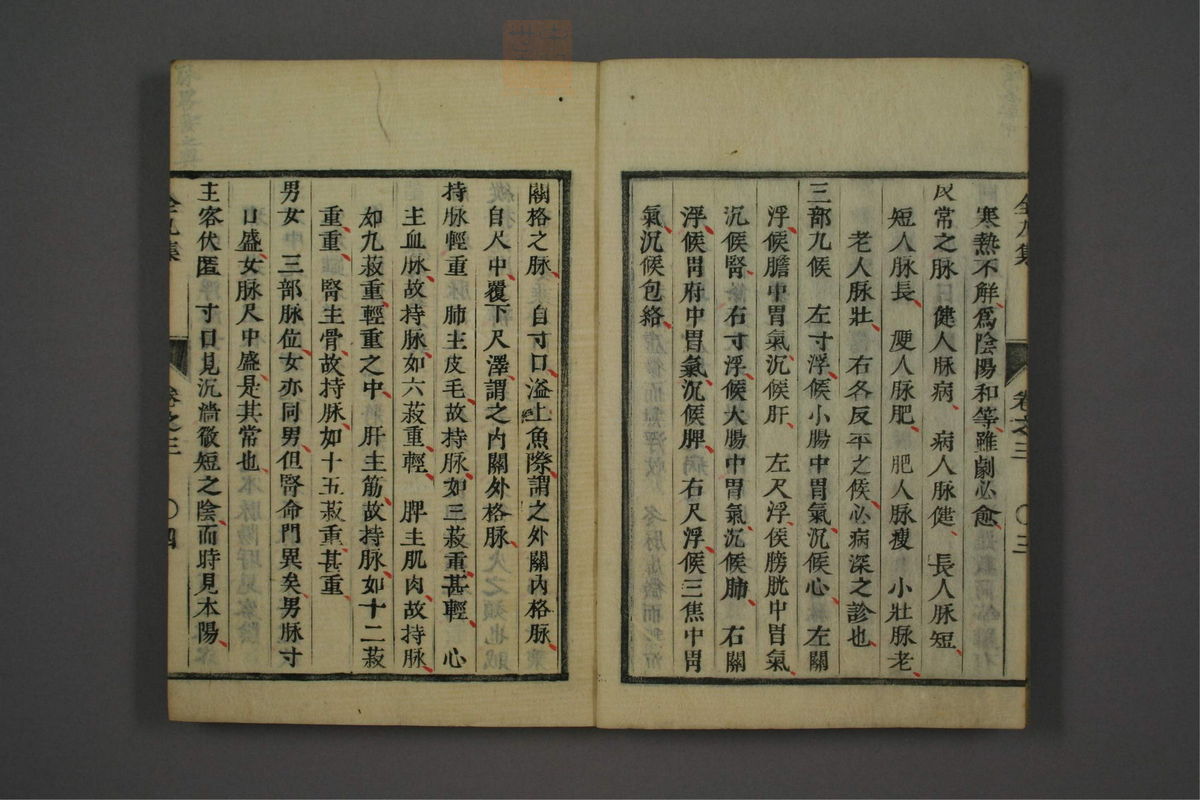 寒熱不觧爲陰陽和等雖劇必愈
反常之脉曰健人脉病　病人脉健　長人脉短
短人脉長　瘦人脉肥　肥人脉瘦　小壯脉老
老人脉壯　右各反平之候必病深之診也
三部九候　左寸浮候小腸中胃氣沉候心　左關
浮候膽中胃氣沉候肝　左尺浮候膀胱中胃氣
沉候腎　右寸浮候大腸中胃氣沉候肺　右關
浮候胃府中胃氣沉候脾　右尺浮候三焦中胃
氣沉候包絡
全九集　卷之三　〇三
關格之脉　自寸口溢上魚際謂之外關内格脉
自尺中覆下尺澤謂之内關外格脉
持脉輕重　肺主皮毛故持脉如三菽重甚輕　心
主血脉故持脉如六菽重輕　脾主肌肉故持脉
如九菽重輕重之中　肝主筋故持脉如十二菽
重重　腎主骨故持脉如十五菽重甚重
男女　三部脉位女亦同男但腎命門異矣男脉寸
口盛女脉尺中盛是其常也
主客伏匿　寸口見沉濇微短之陰而時見本陽
全九集　卷之三　〇四